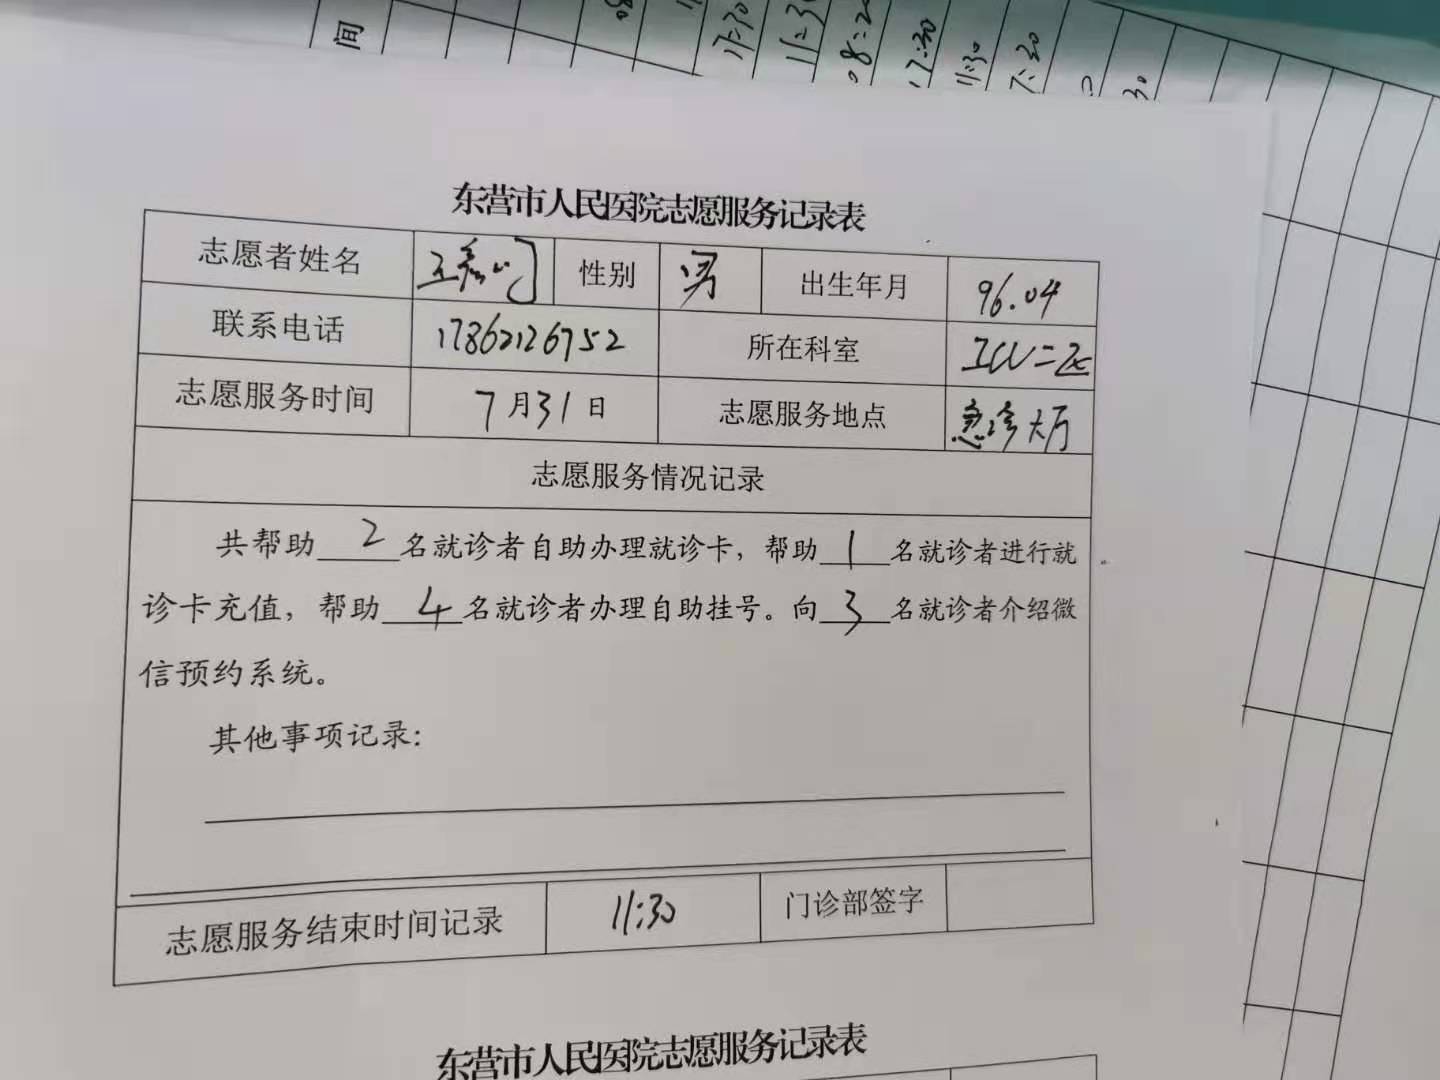 间
08
17:30
11:3
08:20
17:30
11:30
7:30
30
东营市人民医院志愿服务记录表
志愿者姓名 性别 男 出生年月 96.04
联系电话 17862126752 所在科室 ICU二区
志愿服务时间 7月31日 志愿服务地点 急诊大厅
志愿服务情况记录
共帮助2名就诊者自助办理就诊卡，帮助1名就诊者进行就
诊卡充值，帮助4名就诊者办理自助挂号。向3名就诊者介绍微
信预约系统。
其他事项记录：
志愿服务结束时间记录 11:30 门诊部签字
东营市人民医院志愿服务记录表